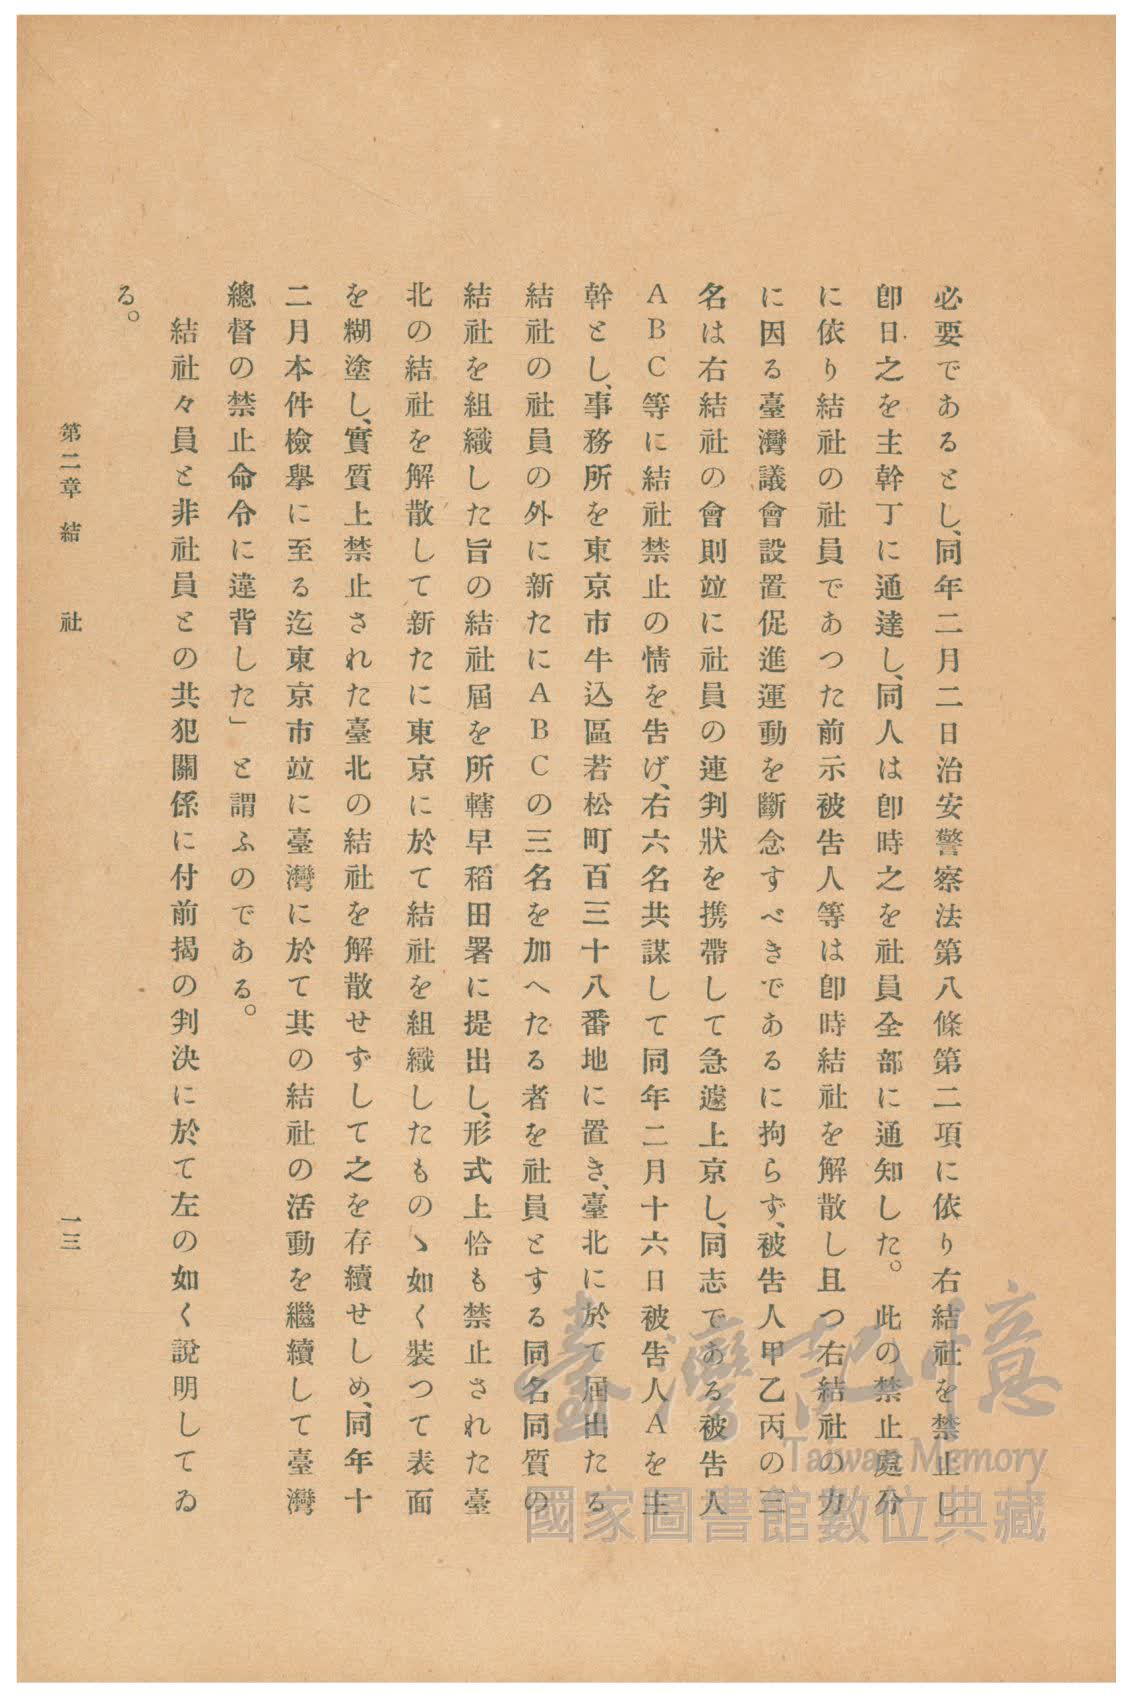 必要であるとし、同年二月二日治安警察法第八條第二項に依り右結社を禁止し
卽日之を主幹丁に通達し、同人は卽時之を社員全部に通知した。此の禁止處分
に依り結社の社員であつた前示被告人等は卽時結社を解散し且つ右結社の力
に因る臺灣議會設置促進運動を斷念すべきであるに拘らず、被告人甲乙丙の三
名は右結社の會則竝に社員の連判狀を携帶して急遽上京し、同志である被告人
ABC等に結社禁止の情を告げ、右六名共謀して同年二月十六日被告人Aを主
幹とし、事務所を東京市牛込區若松町百三十八番地に置き、臺北に於て屆出たる
結社の社員の外に新たにABCの三名を加へたる者を社員とする同名同質の
結社を組織した旨の結社屆を所轄早稻田署に提出し、形式上恰も禁止された臺
北の結社を解散して新たに東京に於て結社を組織したものゝ如く裝つて表面
を糊塗し、實質上禁止された臺北の結社を解散せずして之を存續せしめ、同年十
二月本件檢擧に至る迄東京市竝に臺灣に於て其の結社の活動を繼續して臺灣
總督の禁止命令に違背した」と謂ふのである。
結社々員と非社員との共犯關係に付前揭の判決に於て左の如く說明してゐ
る。
第二章 結 社
一三
臺灣記憶
Taiwan Memory
國家圖書館數位典藏